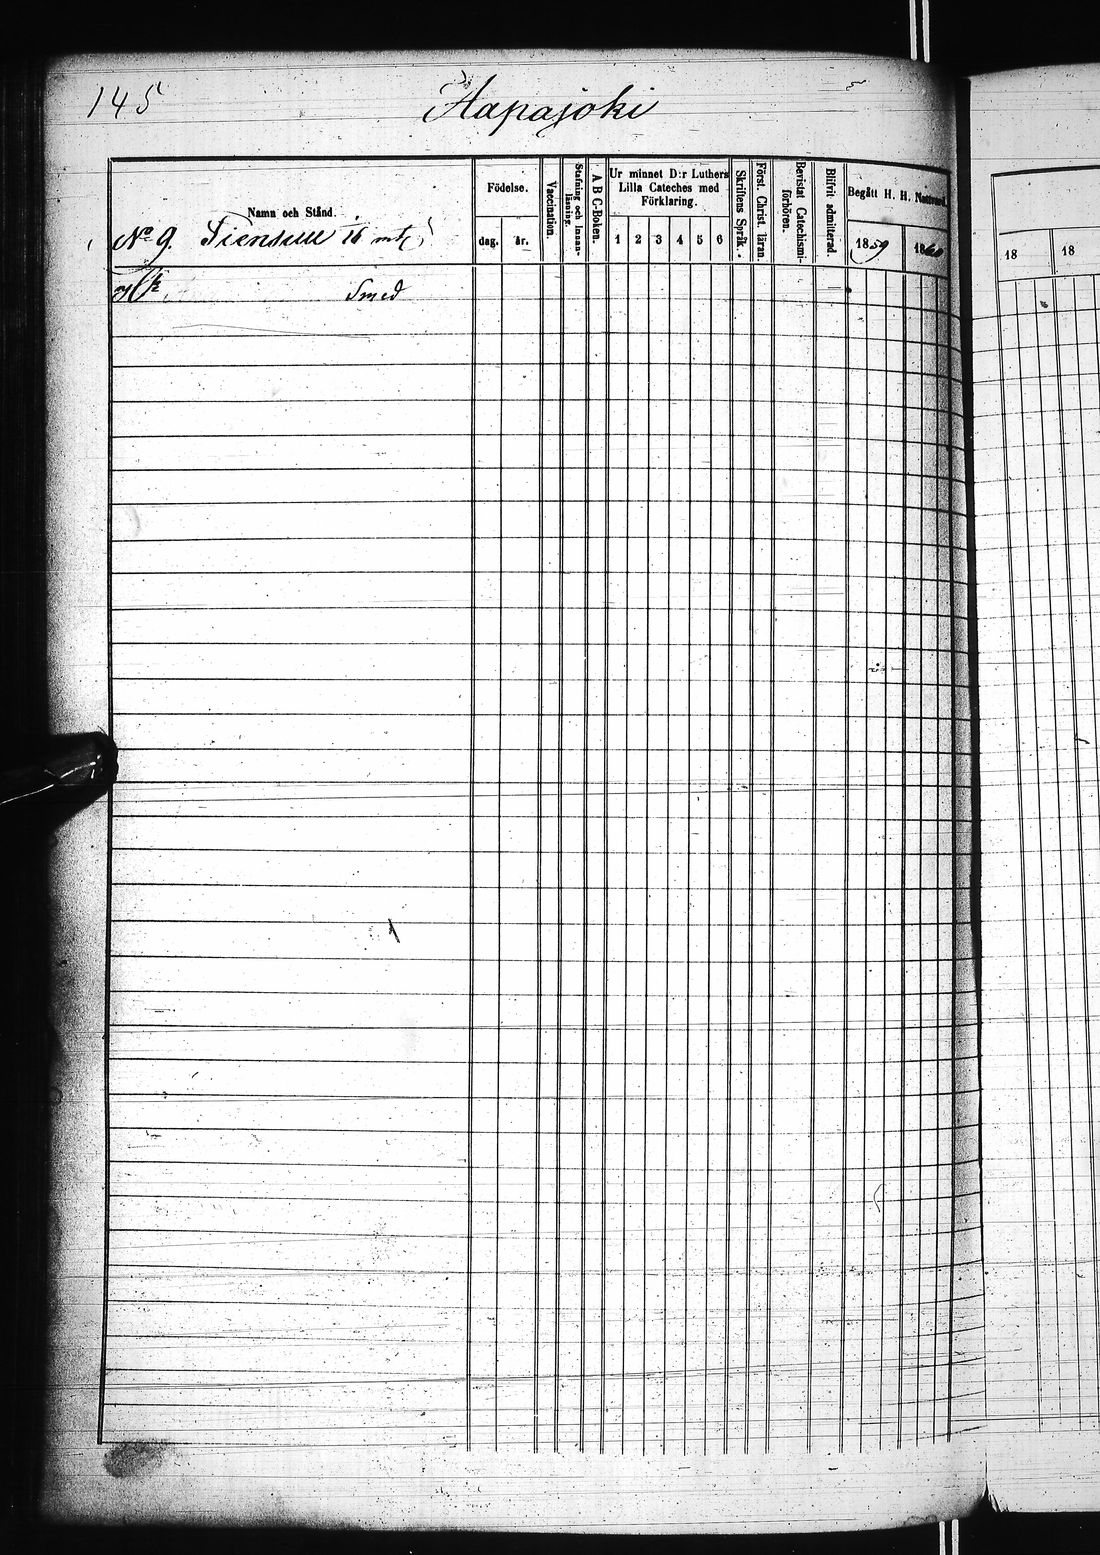 145
Haapajoki
Namn och Stånd.
Födelse.
dag.
år.
Vaccination.
Stafning och Innan-
läsning.
A B C-Boken.
Ur minnet D:r Luthers
Lilla Cateches med
Förklaring.
1 2 3 4 5 6
Skriftens Språk.
Först. Christ. läran.
Bevistat Catechismi-
förhören.
Blifvit admitterad.
Begått H. H. Nattvard.
1859
1860
18
18
No 9. Tiensuu
Smed